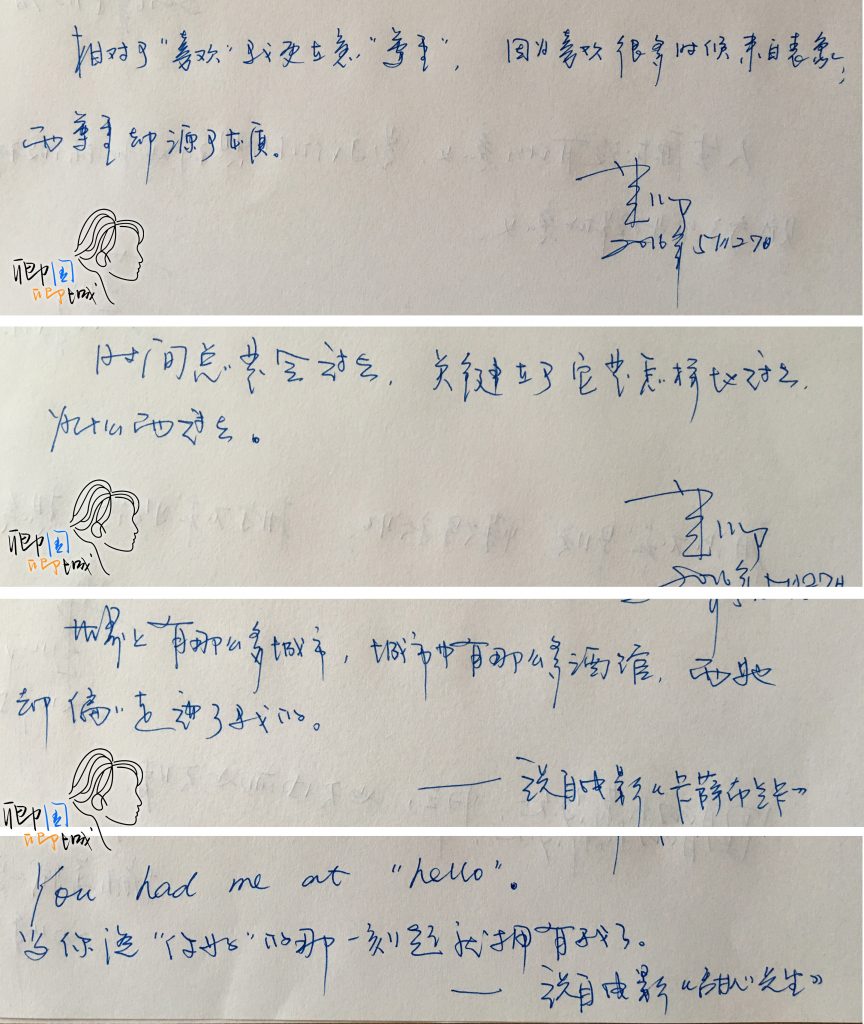 相对于“喜欢”我更在意“尊重”， 因为喜欢很多时候来自表象；
而尊重却源于本质。
2016年5月27日
聊国
聊城
时间总要会过去，关键在于它要怎样地过去，
为什么而过去。
2016年5月27日
聊国
聊城
世界上有那么多城市，城市中有那么多酒馆，而她
却偏偏走进了我的。
—— 说自电影《卡萨布兰卡》
聊国
聊城
You had me at "hello".
当你说“你好”的那一刻起就拥有我了。
—— 说自电影《甜心先生》